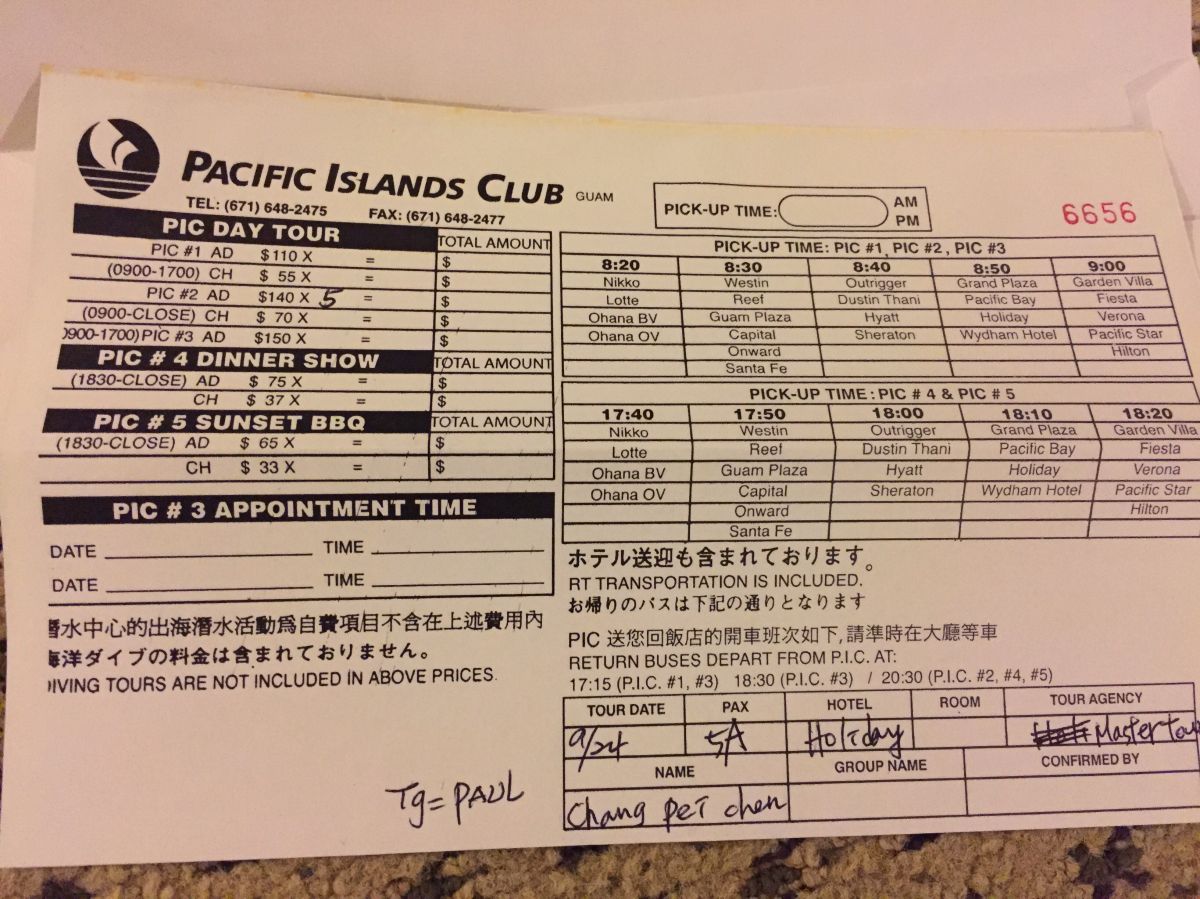 PACIFIC ISLANDS CLUB GUAM
TEL: (671) 648-2475 FAX: (671) 648-2477
PICK-UP TIME: AM PM
6656
PIC DAY TOUR TOTAL AMOUNT
PIC #1 AD $110 X = $
(0900-1700) CH $ 55 X = $
PIC #2 AD $140 X 5 = $
(0900-CLOSE) CH $ 70 X = $
0900-1700)PIC #3 AD $150 X = $
PIC # 4 DINNER SHOW TOTAL AMOUNT
(1830-CLOSE) AD $ 75 X = $
CH $ 37 X = $
PIC # 5 SUNSET BBQ TOTAL AMOUNT
(1830-CLOSE) AD $ 65 X = $
CH $ 33 X = $
PIC # 3 APPOINTMENT TIME
DATE TIME
DATE TIME
潛水中心的出海潛水活動爲自費項目不含在上述費用內
海洋ダイブの料金は含まれておりません。
DIVING TOURS ARE NOT INCLUDED IN ABOVE PRICES.
Tg= PAUL
PICK-UP TIME: PIC #1, PIC #2, PIC #3
8:20 8:30 8:40 8:50 9:00
Nikko Westin Outrigger Grand Plaza Garden Villa
Lotte Reef Dustin Thani Pacific Bay Fiesta
Ohana BV Guam Plaza Hyatt Holiday Verona
Ohana OV Capital Sheraton Wydham Hotel Pacific Star
Onward Hilton
Santa Fe
PICK-UP TIME: PIC # 4 & PIC # 5
17:40 17:50 18:00 18:10 18:20
Nikko Westin Outrigger Grand Plaza Garden Villa
Lotte Reef Dustin Thani Pacific Bay Fiesta
Ohana BV Guam Plaza Hyatt Holiday Verona
Ohana OV Capital Sheraton Wydham Hotel Pacific Star
Onward Hilton
Santa Fe
ホテル送迎も含まれております。
RT TRANSPORTATION IS INCLUDED.
お帰りのバスは下記の通りとなります
PIC 送您回飯店的開車班次如下,請準時在大廳等車
RETURN BUSES DEPART FROM P.I.C. AT:
17:15 (P.I.C. #1, #3) 18:30 (P.I.C. #3) / 20:30 (P.I.C. #2, #4, #5)
TOUR DATE PAX HOTEL ROOM TOUR AGENCY
9/24 5A Holiday Master Tour
NAME GROUP NAME CONFIRMED BY
Chang pei chen